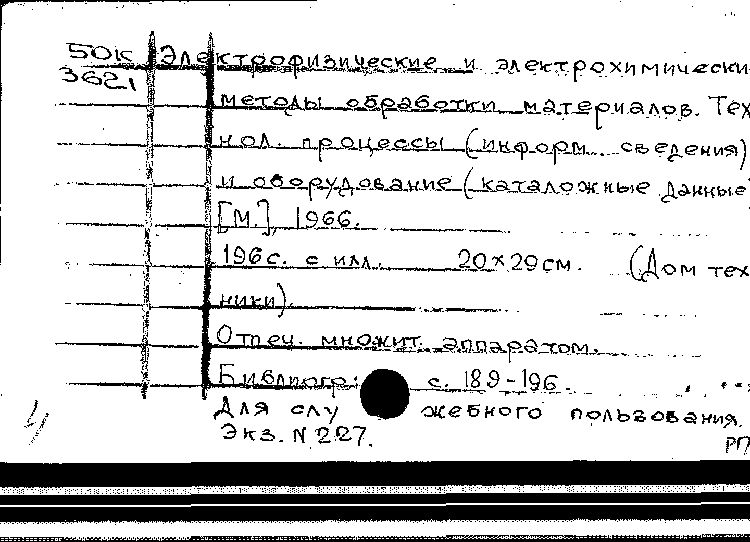 50к Электрофизические и электрохимически
3621
методы обработки материалов. Тех
нол. процессы (информ. сведения)
и оборудование (каталожные данные
[М.], 1966.
196 с. с илл. 20×29 см. (Дом тех
ники).
Отпеч. множит. аппаратом.
Библиогр: с. 189-196.
Для слу жебного пользования.
Экз. N 227.
РП